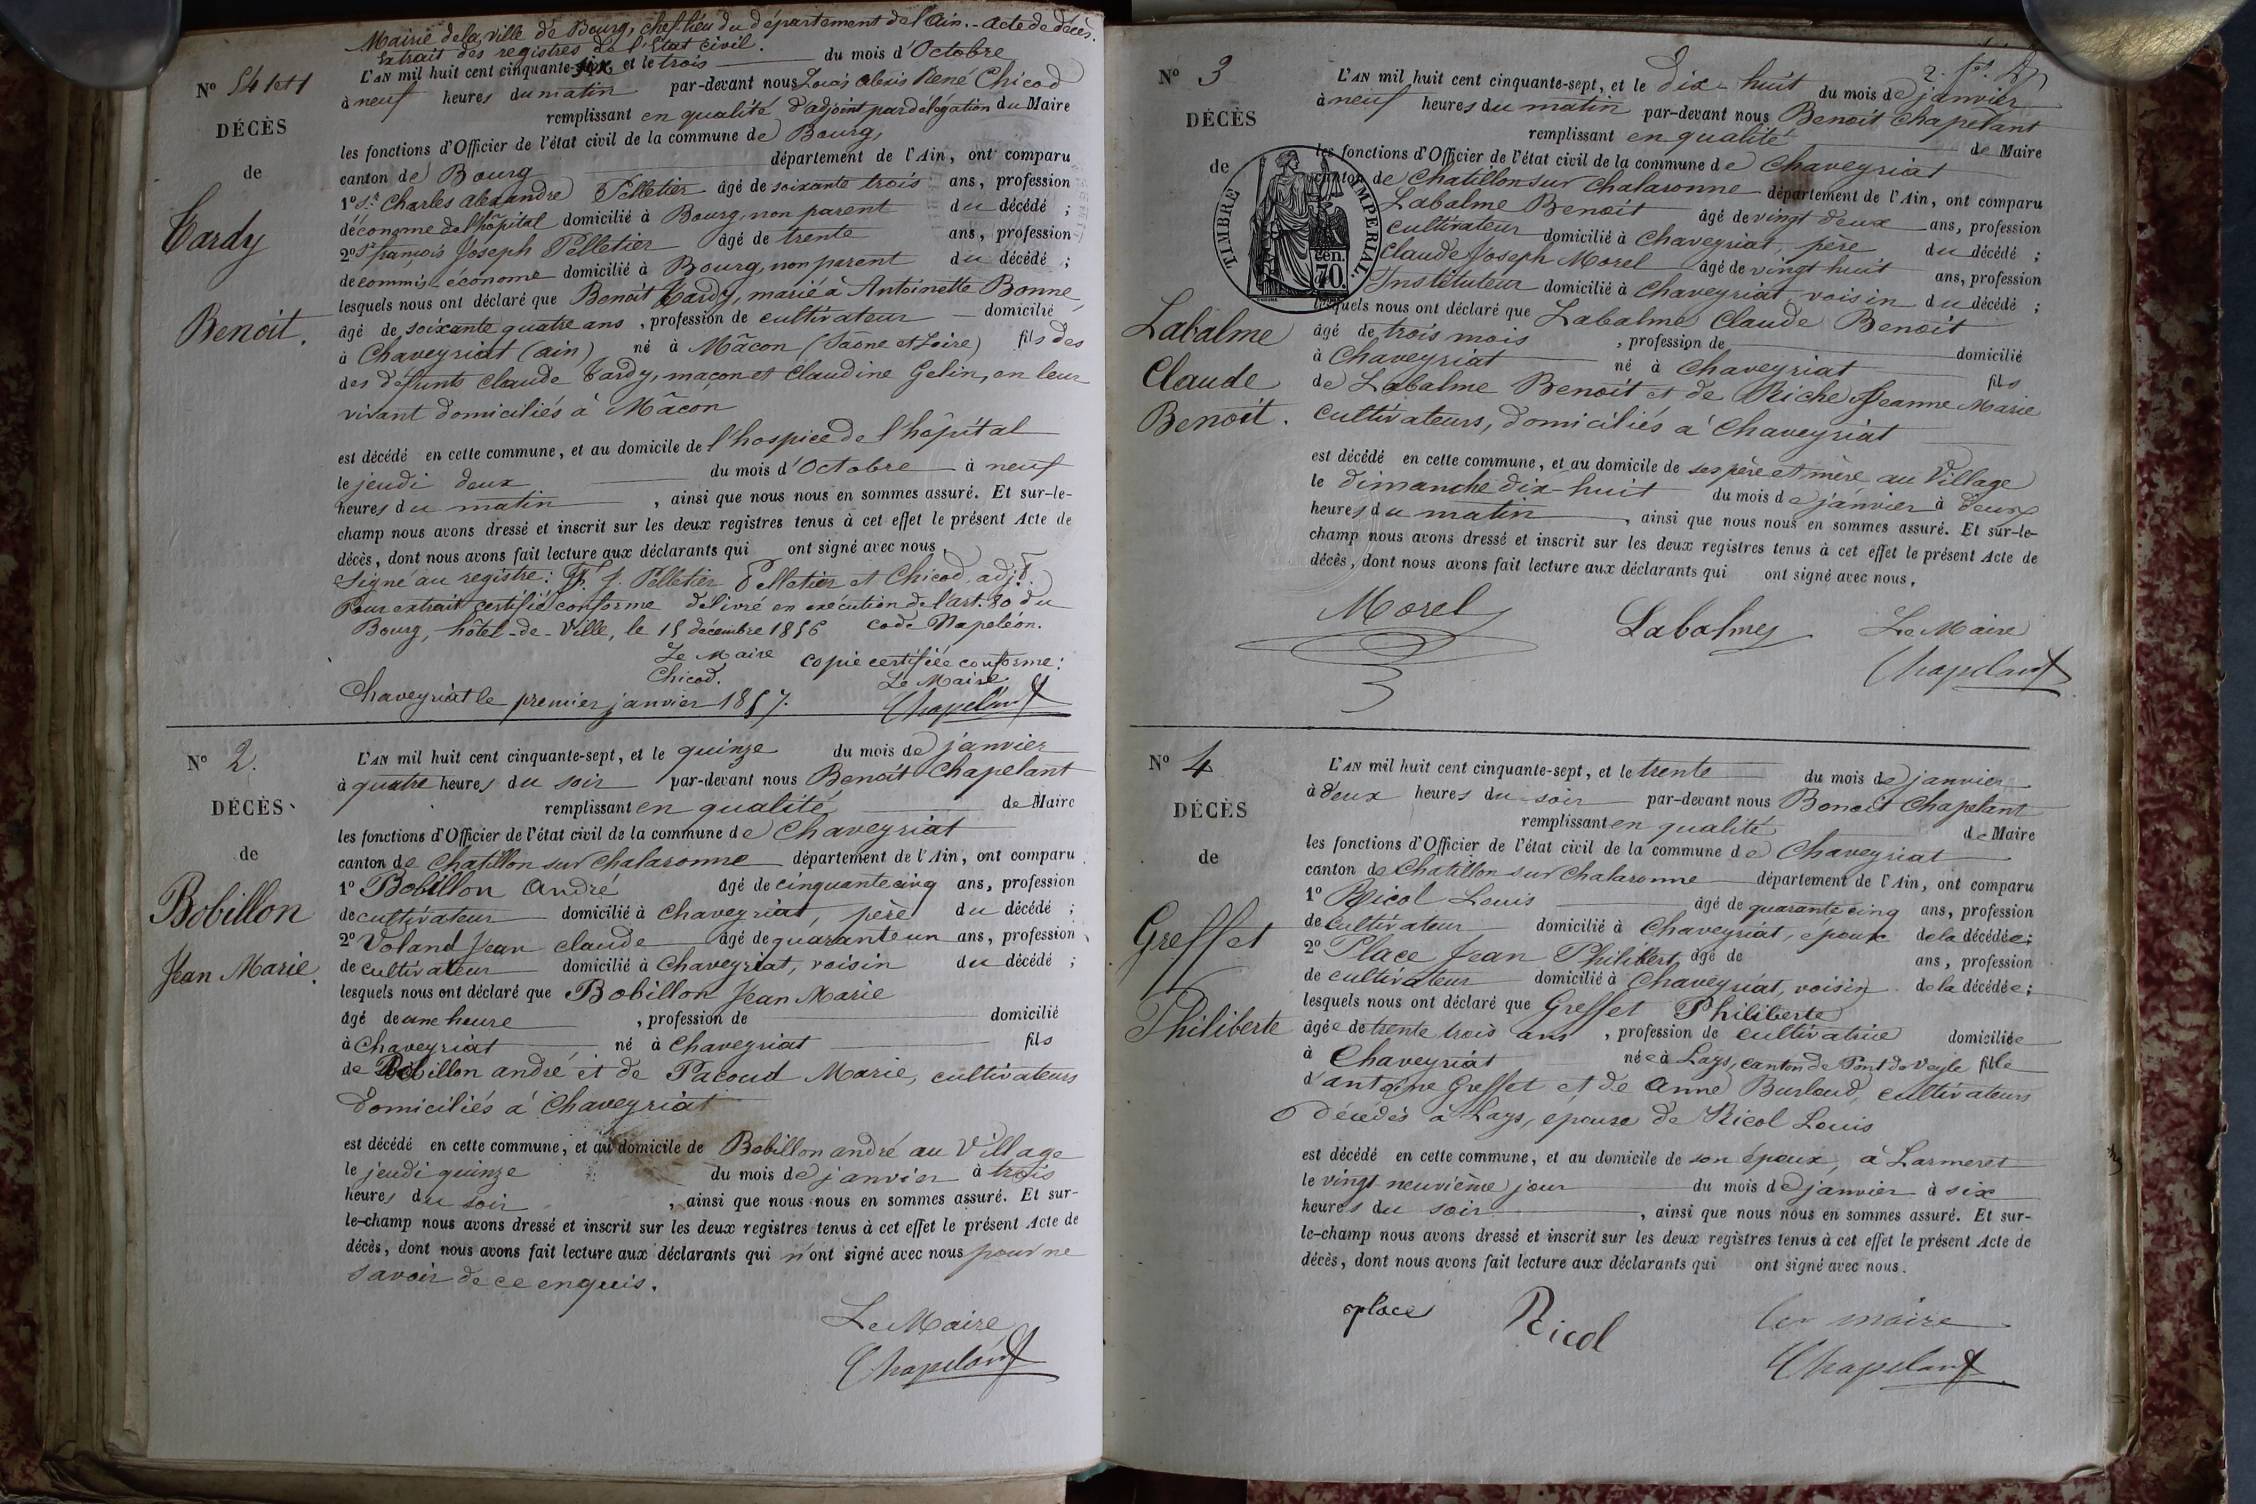 Mairie de la ville de Bourg, chef lieu du département de l'Ain. - Acte de décès.
Extrait des registres de l'Etat civil.
N° 541 et 1
DÉCÈS
de
Tardy
Benoit.
L'AN mil huit cent cinquante-six, et le trois du mois d'Octobre
à neuf heures du matin par-devant nous Louis Alexis René Chicod
remplissant en qualité d'adjoint par délégation du Maire
les fonctions d'Officier de l'état civil de la commune de Bourg,
canton de Bourg département de l'Ain, ont comparu
1° Sr. Charles Alexandre Pelletier âgé de soixante trois ans, profession
d'économe de l'hôpital domicilié à Bourg, non parent du décédé ;
2° Sr françois Joseph Pelletier âgé de trente ans, profession
de commis-économe domicilié à Bourg, non parent du décédé ;
lesquels nous ont déclaré que Benoit Tardy, marié à Antoinette Bonne,
âgé de soixante quatre ans, profession de cultivateur domicilié
à Chaveyriat (ain) né à Mâcon (Saône et Loire) fils des
des défunts Claude Tardy, maçon et Claudine Gelin, en leur
vivant domiciliés à Mâcon
est décédé en cette commune, et au domicile de l'hospice de l'hôpital
le jeudi deux du mois d'Octobre à neuf
heures du matin, ainsi que nous nous en sommes assuré. Et sur-le-
champ nous avons dressé et inscrit sur les deux registres tenus à cet effet le présent Acte de
décès, dont nous avons fait lecture aux déclarants qui ont signé avec nous.
Signé au registre : F. J. Pelletier Pelletier et Chicod, adjt.
Pour extrait certifié conforme délivré en exécution de l'art. 80 du
Bourg, hôtel-de-Ville, le 15 décembre 1856 code Napoléon.
Le Maire copie certifiée conforme :
Chicod. Le Maire
Chaveyriat le premier janvier 1857. Chapelant
N° 2.
DÉCÈS
de
Bobillon
Jean Marie.
L'AN mil huit cent cinquante-sept, et le quinze du mois de janvier
à quatre heures du soir par-devant nous Benoit Chapelant
remplissant en qualité de Maire
les fonctions d'Officier de l'état civil de la commune de Chaveyriat
canton de Chatillon sur Chalaronne département de l'Ain, ont comparu
1° Bobillon André âgé de cinquante cinq ans, profession
de cultivateur domicilié à Chaveyriat, père du décédé ;
2° Voland Jean Claude âgé de quarante un ans, profession
de cultivateur domicilié à Chaveyriat, voisin du décédé ;
lesquels nous ont déclaré que Bobillon Jean Marie
âgé de une heure, profession de domicilié
à Chaveyriat né à Chaveyriat fils
de Bobillon andré et de Pacoud Marie, cultivateurs
domiciliés à Chaveyriat
est décédé en cette commune, et au domicile de Bobillon andré au Village
le jeudi quinze du mois de janvier à trois
heures du soir, ainsi que nous nous en sommes assuré. Et sur-
le-champ nous avons dressé et inscrit sur les deux registres tenus à cet effet le présent Acte de
décès, dont nous avons fait lecture aux déclarants qui n'ont signé avec nous pour ne
savoir de ce enquis.
Le Maire
Chapelant
N° 3
DÉCÈS
de
TIMBRE IMPERIAL.
CEN.
70.
Labalme
Claude
Benoit.
L'AN mil huit cent cinquante-sept, et le dix-huit du mois de janvier
à neuf heures du matin par-devant nous Benoit Chapelant
remplissant en qualité de Maire
les fonctions d'Officier de l'état civil de la commune de Chaveyriat
canton de Chatillon sur Chalaronne département de l'Ain, ont comparu
Labalme Benoit âgé de vingt deux ans, profession
cultivateur domicilié à Chaveyriat, père du décédé ;
Claude Joseph Morel âgé de vingt huit ans, profession
Instituteur domicilié à Chaveyriat, voisin du décédé ;
lesquels nous ont déclaré que Labalme Claude Benoit
âgé de trois mois, profession de domicilié
à Chaveyriat né à Chaveyriat fils
de Labalme Benoit et de Riche Jeanne Marie
cultivateurs, domiciliés à Chaveyriat
est décédé en cette commune, et au domicile de ses père et mère au Village
le dimanche dix-huit du mois de janvier à deux
heures du matin, ainsi que nous nous en sommes assuré. Et sur-le-
champ nous avons dressé et inscrit sur les deux registres tenus à cet effet le présent Acte de
décès, dont nous avons fait lecture aux déclarants qui ont signé avec nous.
Morel Labalme Le Maire
Chapelant
N° 4
DÉCÈS
de
Greffet
Philiberte
L'AN mil huit cent cinquante-sept, et le trente du mois de janvier
à deux heures du soir par-devant nous Benoit Chapelant
remplissant en qualité de Maire
les fonctions d'Officier de l'état civil de la commune de Chaveyriat
canton de Chatillon sur Chalaronne département de l'Ain, ont comparu
1° Nicol Louis âgé de quarante cinq ans, profession
de cultivateur domicilié à Chaveyriat, époux de la décédée ;
2° Place Jean Philibert, âgé de ans, profession
de cultivateur domicilié à Chaveyriat, voisin de la décédée ;
lesquels nous ont déclaré que Greffet Philiberte
âgée de trente trois ans, profession de cultivatrice domiciliée
à Chaveyriat née à Lays, canton de Pont de Veyle fille
d'antoine Greffet et de Anne Burloud, cultivateurs
décédés à Lays, épouse de Nicol Louis
est décédé en cette commune, et au domicile de son époux, à Larmeret
le vingt neuvième jour du mois de janvier à six
heures du soir, ainsi que nous nous en sommes assuré. Et sur-
le-champ nous avons dressé et inscrit sur les deux registres tenus à cet effet le présent Acte de
décès, dont nous avons fait lecture aux déclarants qui ont signé avec nous.
place Nicol Le maire
Chapelant